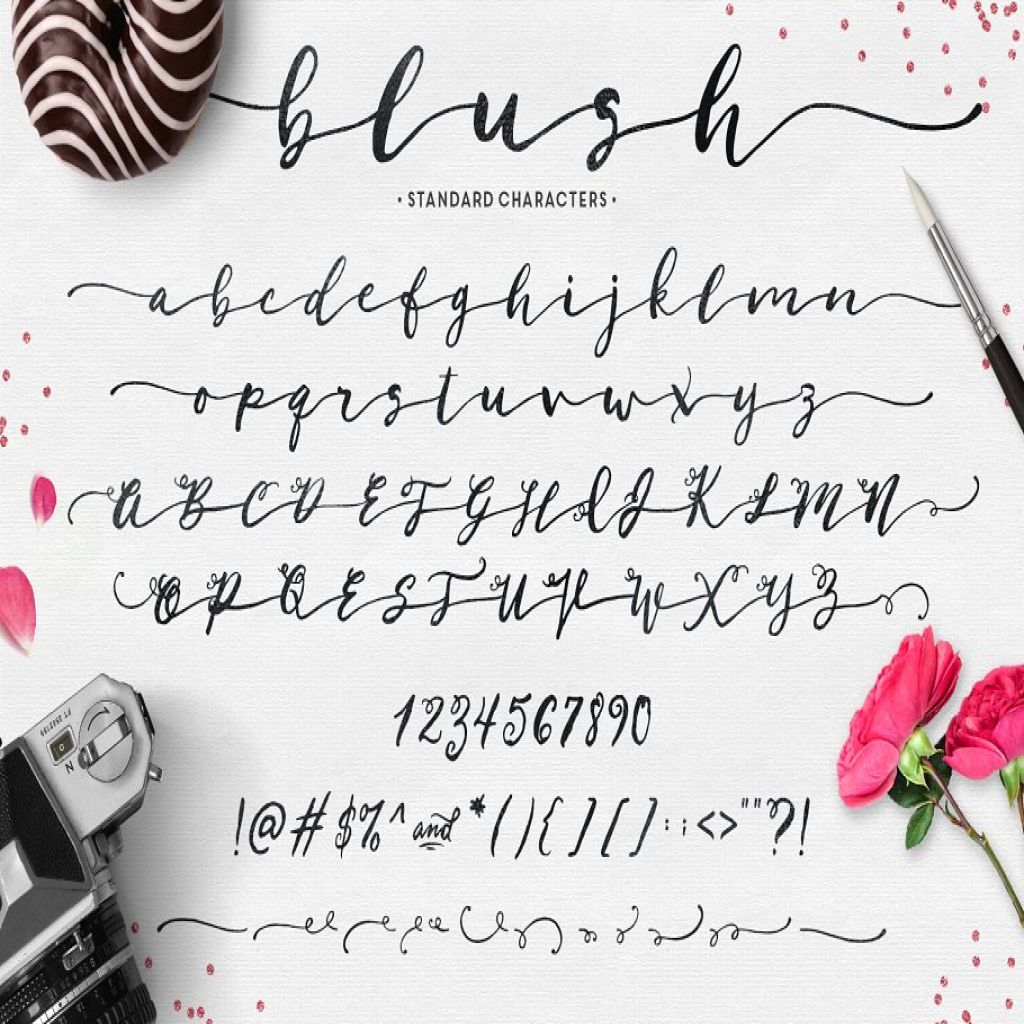 blush
• STANDARD CHARACTERS •
abcdefghijklmn
opqrstuvwxyz
ABCDEFGHIJKLMN
OPQRSTUVWXYZ
1234567890
!@#$%^and*(){][]:;<>""?!
N